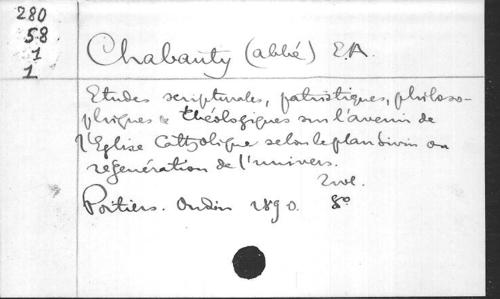 280
58
1
1
Chabauty (abbé) E.A.
Etudes scripturales, patristiques, philoso-
phiques & théologiques sur l'avenir de
l'Eglise Catholique selon le plan divin ou
regénération de l'univers.
2 vol.
Poitiers. Oudin 1890. 8º